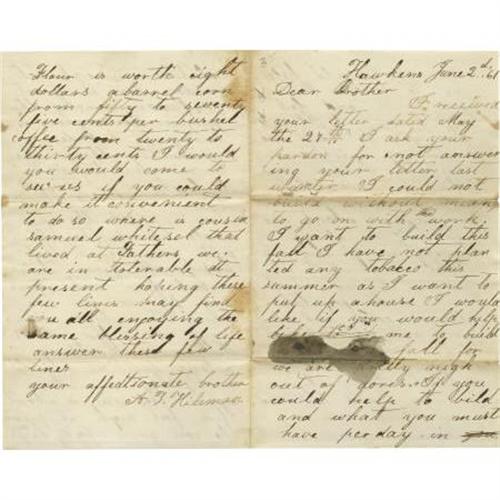 Hawkens June 2nd, 61
Dear Brother
I received
your letter dated May
the 27th I ask your
pardon for not answer
ing your letter last
I could not
build without means
to go on with the work
I want to build this
fall I have not plan
ted any tobacco this
summer as I want to
put up a house I would
like if you would help
me to build
fall for
we are nigh
out of doors. If you
could help to bild
and what you must
have per day in you
Flour is worth eight
dollars a barrel corn
from fifty to seventy
five cents per bushel
coffee from twenty to
thirty cents I would
you would come to
se us if you could
make it convenient
to do so where is cousin
samuel whitesel that
lived at Fathers we
are in tolerable at
present hoping these
few lines may find
you all enjoying the
same blessing of life
answer these few
lines
your affedtsonate brother
A. T.